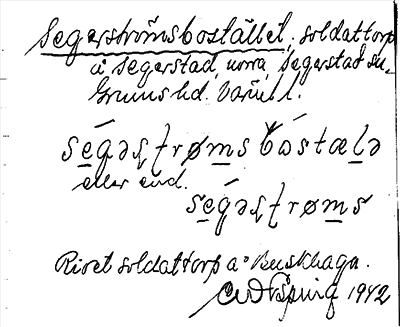 Segerströmsbostället, soldattorp
å Segerstad, norra, Segerstad sn.
Grums hd. Värml.
segəʂtrøms bostælə
eller end.
segəʂtrøms
Rivet soldattorp å Buskhaga.
1942